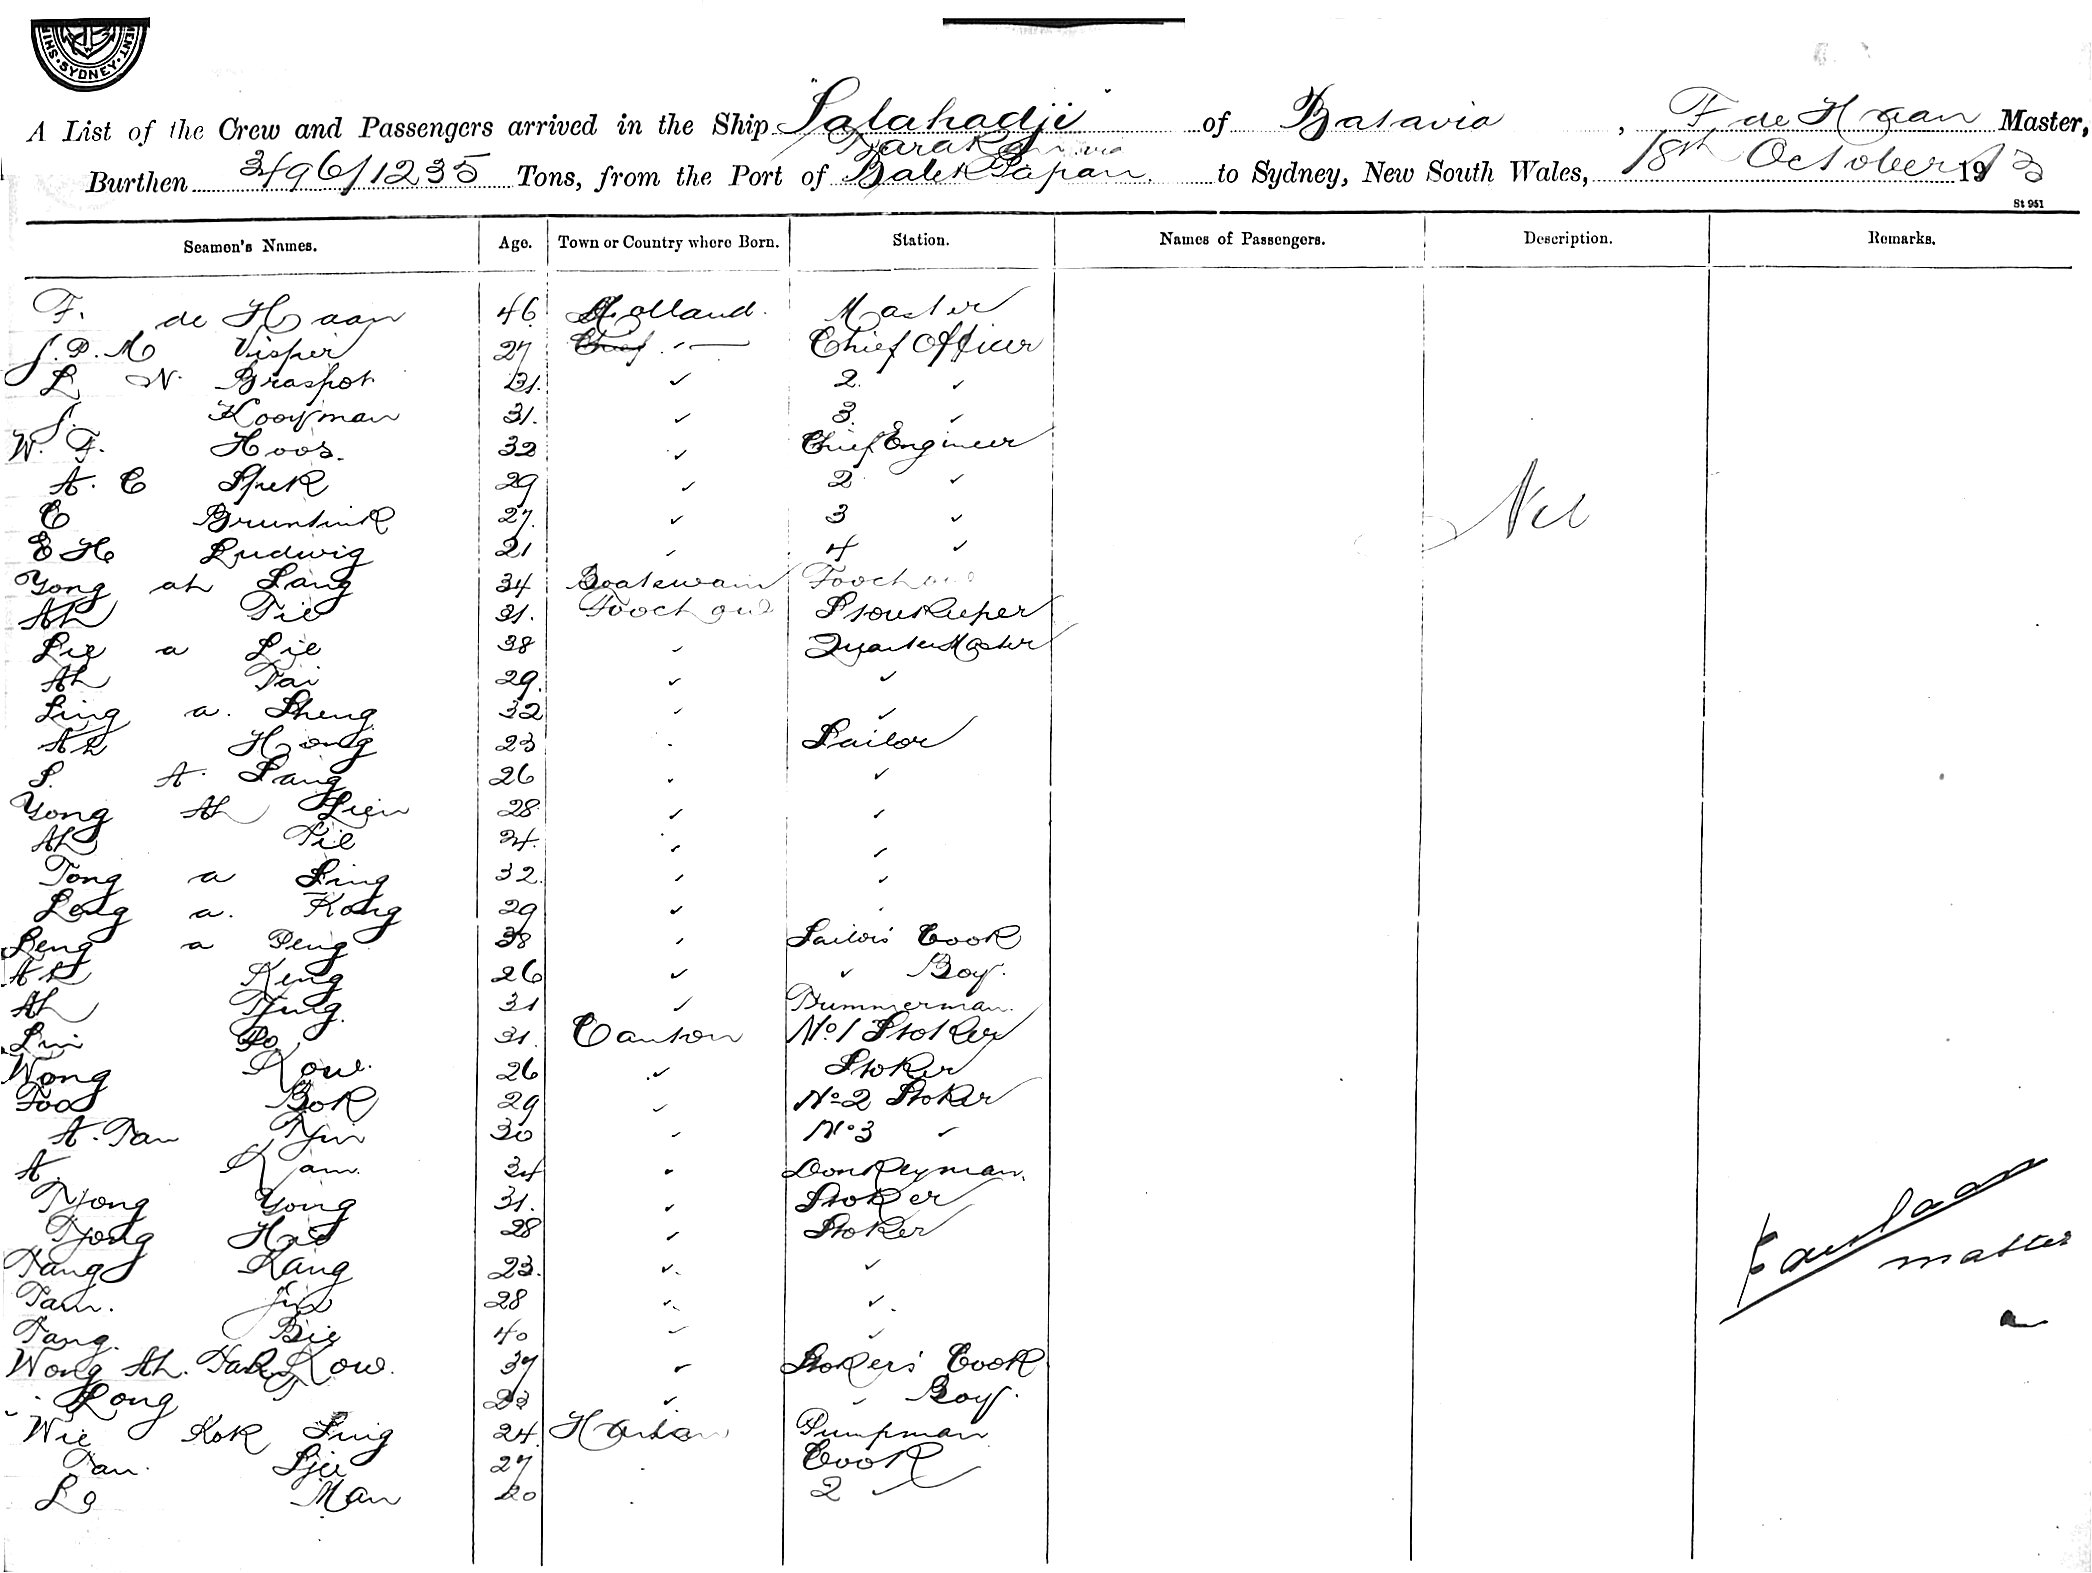 SYDNEY
A List of the Crew and Passengers arrived in the Ship Salahadji of Batavia, F de Haan Master,
Tarakan via
Burthen 3496/1235 Tons, from the Port of Balek Papan to Sydney, New South Wales, 18th October 1913
St 951
Seamen's Names. Age. Town or Country where Born. Station. Names of Passengers. Description. Remarks.
F. de Haan 46 Holland. Master
J. P. M Visper 27 Chief " Chief Officer
L N. Braspot 31. " 2. "
J. Kooijman 31. " 3. "
W. F. Hoos. 32 " Chief Engineer
A. C Spek 29 " 2 "
Nil
C Bruntink 27. " 3 "
E H Ludwig 21 " 4 "
Yong ah Sang 34 Boatswain Foochow
Ah Tie 31. Foochow Storekeeper
Lie a Lie 38 " QuarterMaster
Ah Tai 29. " "
Ling a. Sheng 32 " "
Ah Hong 23 " Sailor
S. A. Sang 26 " "
Yong Ah Lien 28 " "
Ah Tie 24. " "
Tong a Sing 32. " "
Leng a. Kong 29 " "
Leng a Peng 38 " Sailors' Cook
Ah Keng 26 " " Boy.
Ah Tjing. 31 " Tummerman.
Lin Po 31. Canton No. 1 Stoker
Wong Kow. 26 " Stoker
Foo Bok 29 " No 2 Stoker
A. Tan Tjin 30 " No 3 "
A. Kam. 34 " Donkeyman.
Tjong Yong 31. " Stoker
Tjong Hie 28 " Stoker
Tang Kang 23. " "
Tam. Jin 28 " "
master
Tang. Bie 40 " "
Wong Ah. Tak Kow. 37 " Stokers' Cook
" Kong 22 " " Boy.
Wie Kok Sing 24. Pumpman
Tan. Sjie 27 " Cook
Lo Man 20 " 2 "